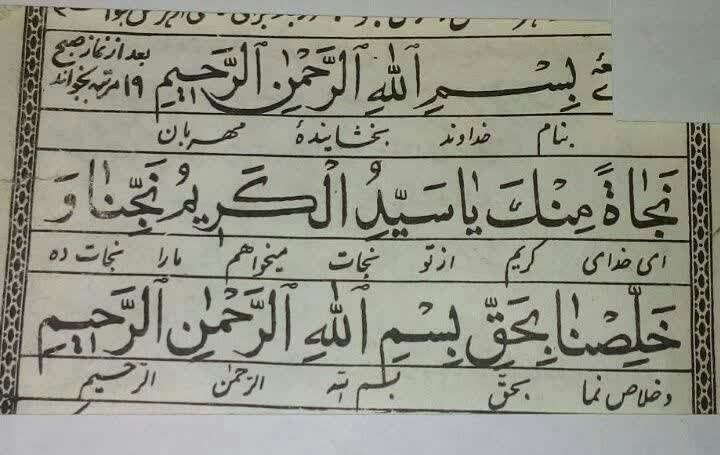 بِسْمِ ٱللّٰهِ ٱلرَّحْمٰنِ ٱلرَّحِيمِ بعد از نماز صبح
۱۹ مرتبه بخواند
بنام خداوند بخشایندهٔ مهربان
نَجٰاةً مِنْكَ يٰا سَيِّدُ الْكَرِيمُ نَجِّنٰا وَ
ای خدای کریم از تو نجات میخواهم مارا نجات ده
خَلِّصْنٰا بِحَقِّ بِسْمِ ٱللّٰهِ ٱلرَّحْمٰنِ ٱلرَّحِيمِ
و خلاص نما بحقّ بسم الله الرّحمٰن الرّحیم